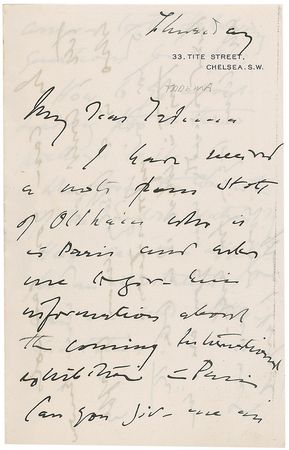 Thursday
33, TITE STREET,
CHELSEA. S.W.
TADEMA
My dear Tadema
I have received
a note from Stott
of Oldham who is
in Paris and asks
me to give him
information about
the coming International
exhibition in Paris
Can you give me an